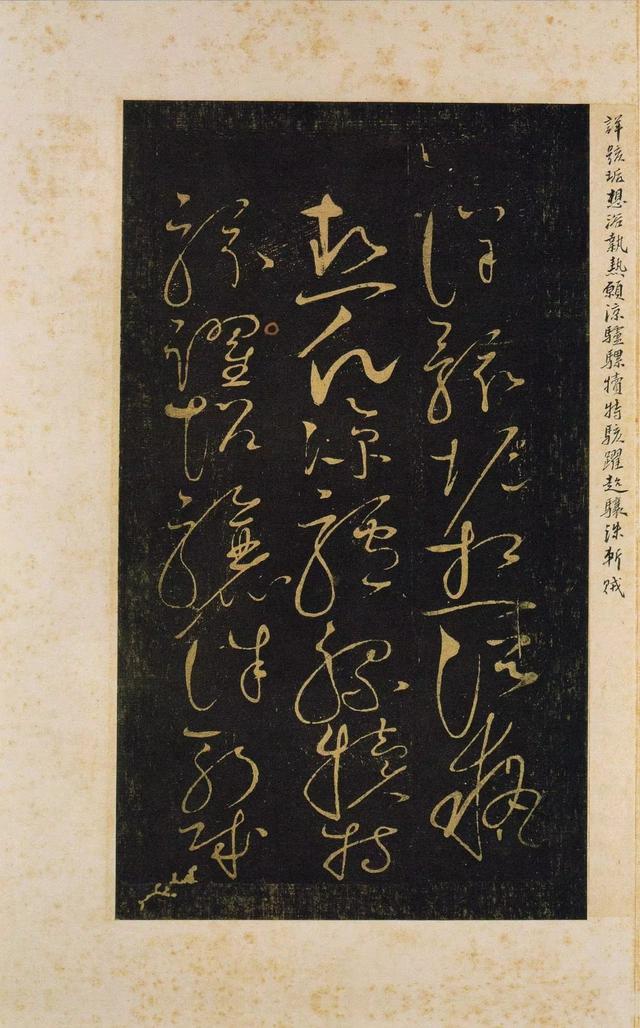 詳骸垢想浴執熱願涼驢騾犢特駭躍超驤誅斬賊
詳骸垢想浴執
熱願涼驢騾犢特
駭躍超驤誅斬賊